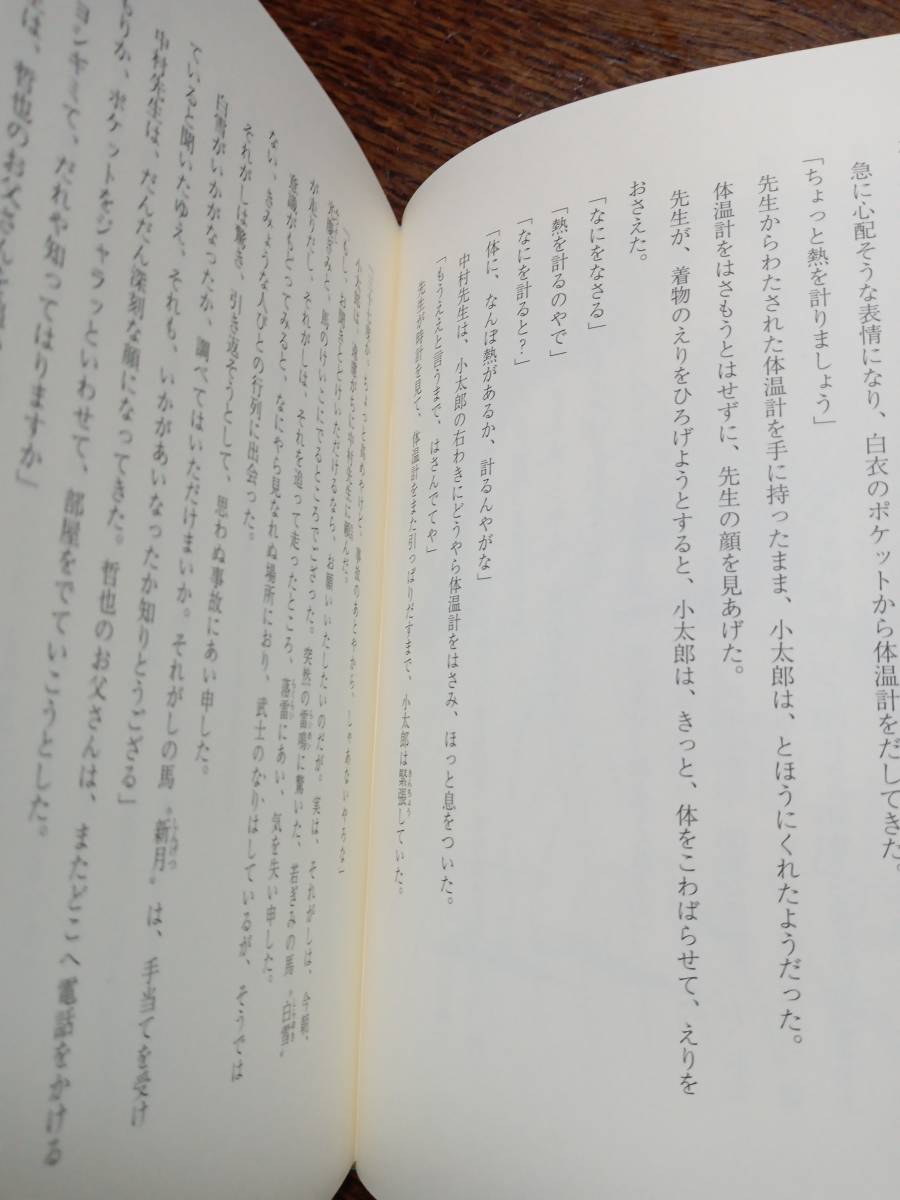 急に心配そうな表情になり、白衣のポケットから体温計をだしてきた。
「ちょっと熱を計りましょう」
先生からわたされた体温計を手に持ったまま、小太郎は、とほうにくれたようだった。
体温計をはさもうとはせずに、先生の顔を見あげた。
先生が、着物のえりをひろげようとすると、小太郎は、きっと、体をこわばらせて、えりを
おさえた。
「なにをなさる」
「熱を計るのやで」
「なにを計ると？」
「体に、なんぼ熱があるか、計るんやがな」
中村先生は、小太郎の右わきにどうやら体温計をはさみ、ほっと息をついた。
「もうええと言うまで、はさんでてや」
先生が時計を見て、体温計をまた引っぱりだすまで、小太郎は緊張していた。
ちょっと高めやけど、事故のあとやから、しゃあないやろな」
小太郎は、遠慮がちに中村先生に頼んだ。
「もし、お聞きとどけいただけるなら、お願いいたしたいのだが。実は、それがしは、今朝、
馬のけいこにでるところでござった。突然の雷鳴に驚いた、若ぎみの馬〝白雪〟
が走りだし、それがしは、それを追って走ったところ、落雷にあい、気を失い申した。
意識がもどってみると、なにやら見なれぬ場所におり、武士のなりはしているが、そうでは
ない、きみょうな人びとの行列に出会った。
それがしは驚き、引き返そうとして、思わぬ事故にあい申した。
白雪がいかがなったか、調べてはいただけまいか。それがしの馬〝新月〟は、手当てを受け
ていると聞いたゆえ、それも、いかがあいなったか知りとうござる」
中村先生は、だんだん深刻な顔になってきた。哲也のお父さんは、またどこへ電話をかける
りか、ポケットをジャラッといわせて、部屋をでていこうとした。
て、だれや知ってはりますか」
は、哲也のお父さんを